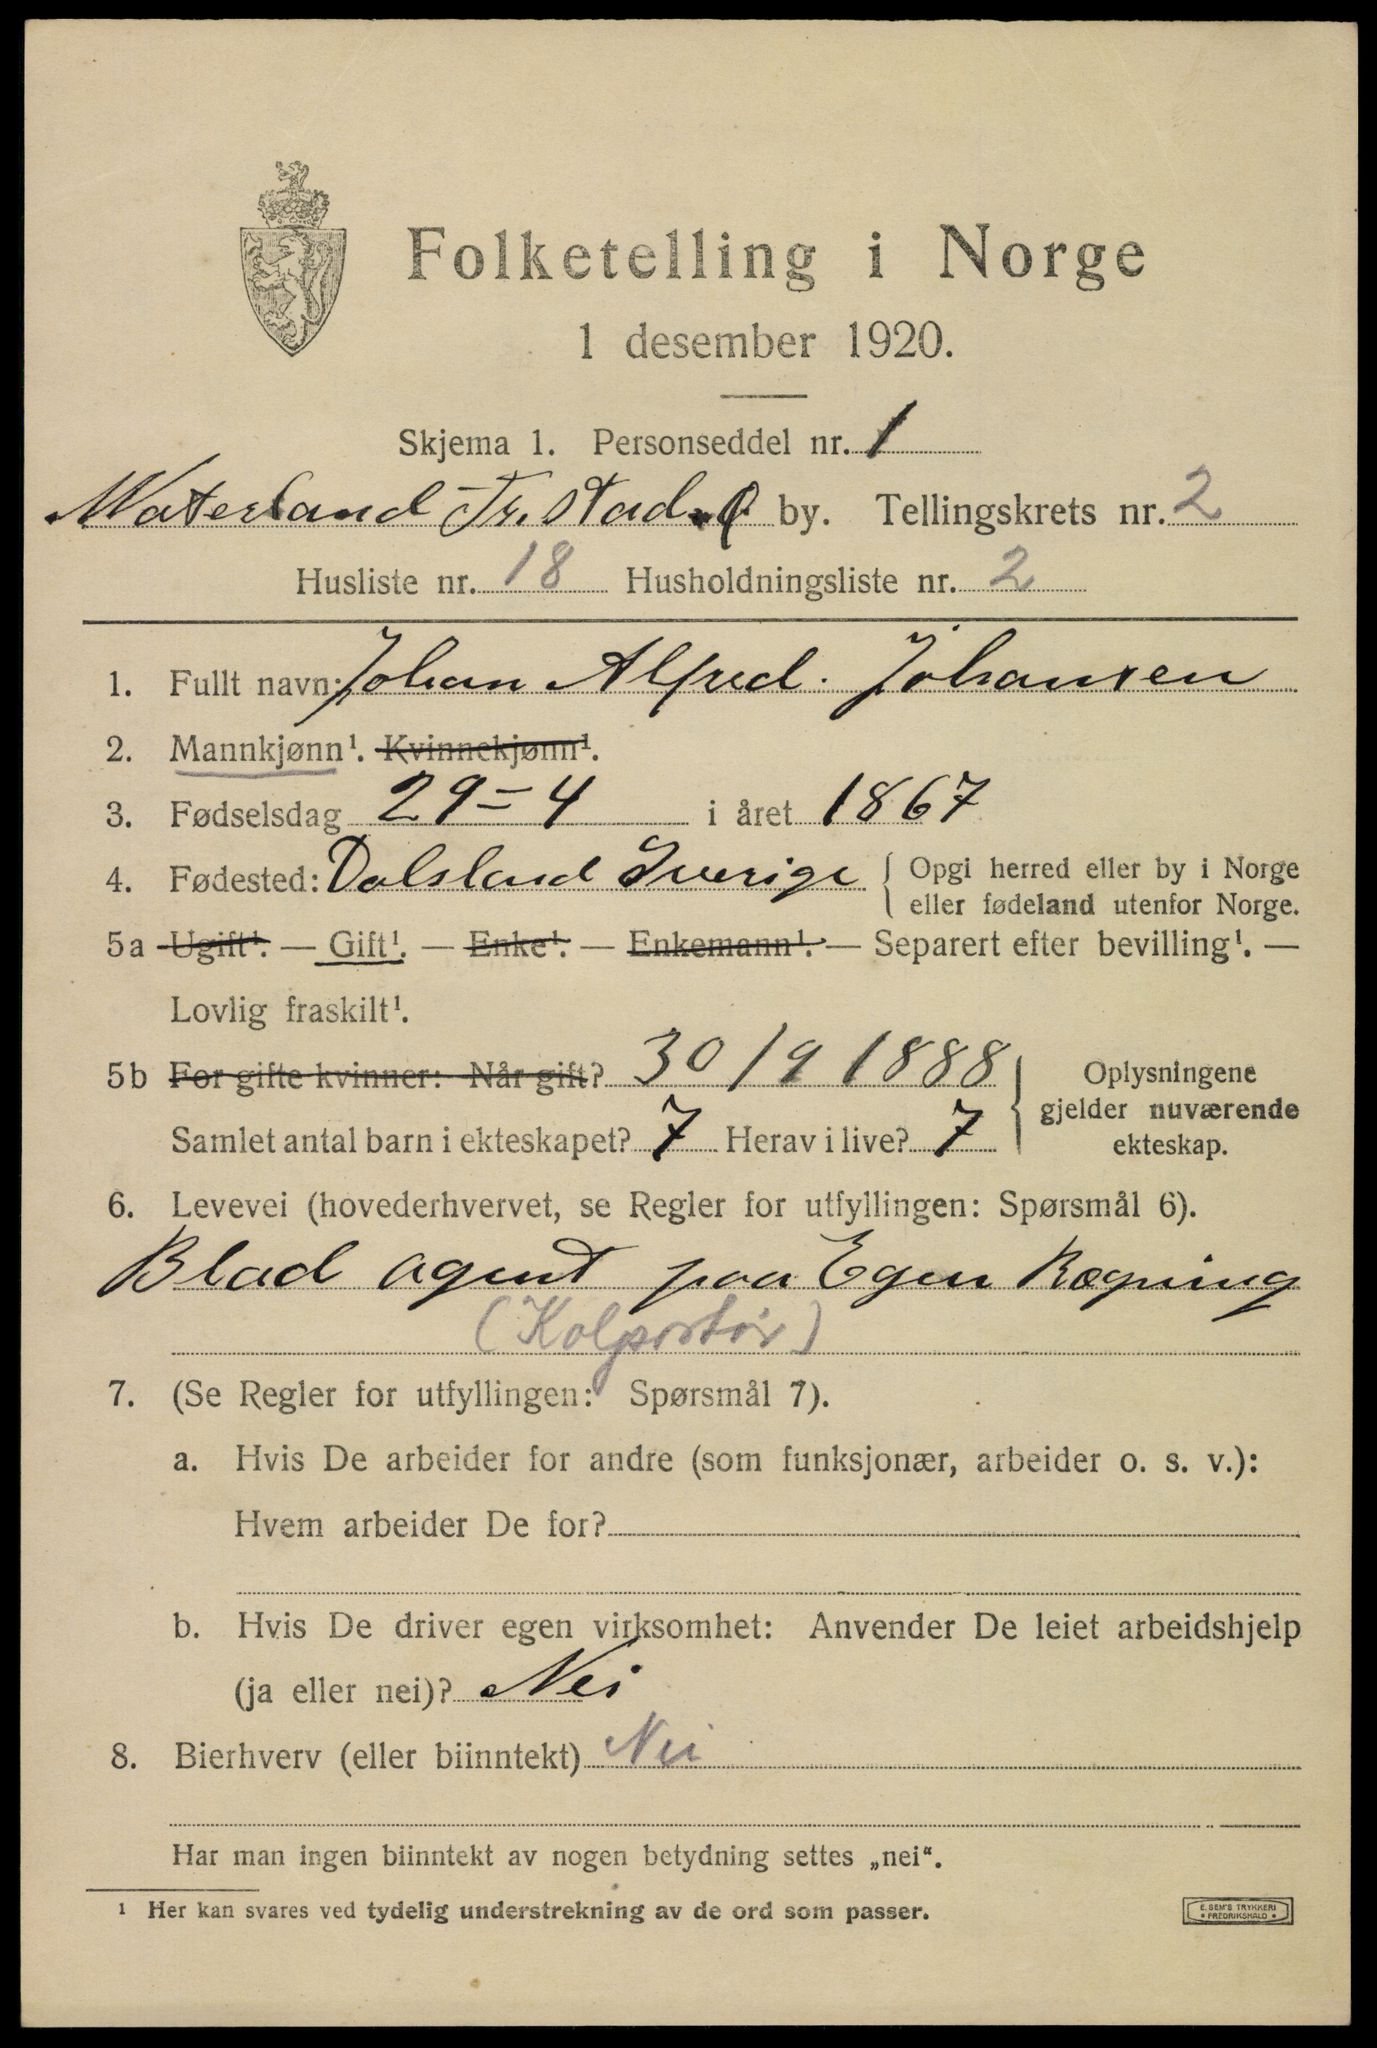 Folketelling i Norge
1 desember 1920.
Skjema 1. Personseddel nr. 1
Waterland Fr.stad by. Tellingskrets nr. 2
Husliste nr. 18 Husholdningsliste nr. 2
1. Fullt navn: Johan Alfred. Johansen
2. Mannkjønn¹. Kvinnekjønn¹.
3. Fødselsdag 29=4 i året 1867
4. Fødested: Dalsland Sverige { Opgi herred eller by i Norge
eller fødeland utenfor Norge.
5a Ugift¹. — Gift¹. — Enke¹. — Enkemann¹. — Separert efter bevilling¹. —
Lovlig fraskilt¹.
5b For gifte kvinner: Når gift? 30/9 1888 } Oplysningene
gjelder nuværende
Samlet antal barn i ekteskapet? 7 Herav i live? 7
ekteskap.
6. Levevei (hovederhvervet, se Regler for utfyllingen: Spørsmål 6).
Blad agent paa Egen Regning
(Kolportør)
7. (Se Regler for utfyllingen: Spørsmål 7).
a. Hvis De arbeider for andre (som funksjonær, arbeider o. s. v.):
Hvem arbeider De for?
b. Hvis De driver egen virksomhet: Anvender De leiet arbeidshjelp
(ja eller nei)? Nei
8. Bierhverv (eller biinntekt) Nei
Har man ingen biinntekt av nogen betydning settes „nei“.
¹ Her kan svares ved tydelig understrekning av de ord som passer.
E. SEM'S TRYKKERI
• FREDRIKSHALD •